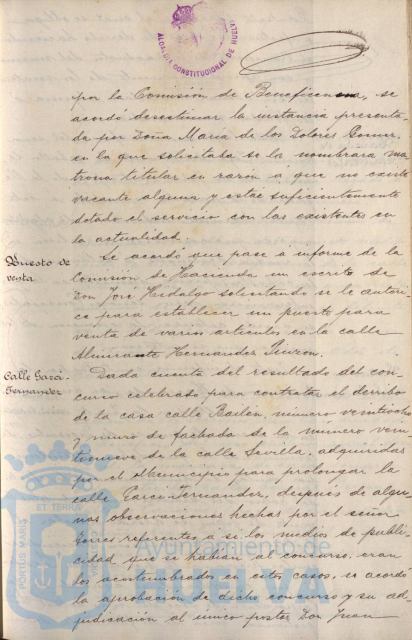 ALCALDIA CONSTITUCIONAL DE HUELVA
por la Comisión de Beneficencia, se
acordó desestimar la instancia presenta-
da por Doña María de los Dolores
en la que solicitaba se la nombrara ma-
trona titular en razón a que no existe
vacante alguna y estar suficientemente
dotado el servicio con las existentes en
la actualidad.
Puesto de
venta
Se acordó que pase a informe de la
Comisión de Hacienda un escrito de
Don José Hidalgo solicitando se le autori-
ce para establecer un puesto para
venta de varios artículos en la calle
Almirante Hernandez Pinzon.
Calle Garci-
Fernandez
Dada cuenta del resultado del con-
curso celebrado para contratar el derribo
de la casa calle Bailen, número veintiocho
y muro de fachada de la número vein-
tinueve de la calle Sevilla, adquiridas
por el Municipio para prolongar la
calle Garci-Fernandez, después de algu-
nas observaciones hechas por el señor
Garcés referentes a si los medios de publi-
cidad que habían el concurso, eran
los acostumbrados en estos casos, se acordó
la aprobación de dicho concurso y su ad-
judicación al único postor Don Juan
PORTUS MARIS ET TERRAE
Ayuntamiento de
HUELVA